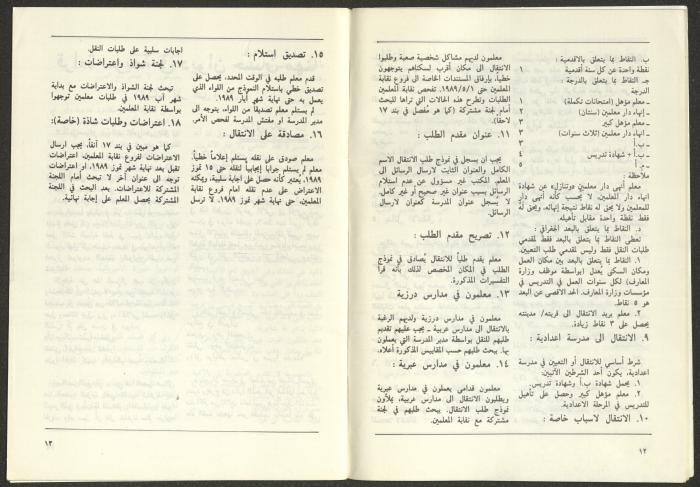 ب. النقاط بما يتعلق بالاقدمية :
نقطة واحدة عن كل سنة أقدمية ١
جـ النقاط بما يتعلق بالدرجة :
الدرجة
ـ معلم مؤهل (امتحانات تكملة) ١
ـ إنهاء دار معلمين (سنتان) ٢
ـ معلم مؤهل كبير ٣
ـ إنهاء دار معلمين (ثلاث سنوات) ٣
ـ ب.أ ٣
ـ ب.أ + شهادة تدريس ٤
ـ م. أ ٥
ملاحظة :
معلم أنهى دار معلمين «وتنازل» عن شهادة
انهاء دار المعلمين، لا يُحسب كأنه أنهى دار
للمعلمين ولا يحق له نقاط نتيجة إنهائه، ويحق له
فقط نقطة واحدة مقابل تأهيله.
د. النقاط بما يتعلق بالبعد الجغرافي :
تعطى النقاط بما يتعلق بالبعد فقط لمقدمي
طلبات النقل فقط وليس لمقدمي طلب التعيين.
١. يحق النقاط بما يتعلق بالبعد بين مكان العمل
ومكان السكن يُعدل (بواسطة موظف وزارة
المعارف) لكل سنوات العمل في التدريس في
مؤسسات وزارة المعارف. الحد الاقصى عن البعد
هو ٥ نقاط.
٢. معلم يريد الانتقال الى قريته/ مدينته
يحصل على ٣ نقاط زيادة.
٩. الانتقال الى مدرسة اعدادية :
شرط أساسي للانتقال أو التعيين في مدرسة
اعدادية، يكون أحد الشرطين الآتيين:
١. يحمل شهادة ب.أ. وشهادة تدريس.
٢. معلم مؤهل كبير وحصل على تأهيل
للتدريس في المرحلة الاعدادية.
١٠. الانتقال لاسباب خاصة :
معلمون لديهم مشاكل شخصية صعبة وطلبوا
الانتقال الى مكان أقرب لسكناهم يتوجهون
خطياً، بإرفاق المستندات الخاصة الى فروع نقابة
المعلمين حتى ١٩٨٩/٥/١. تفحص نقابة المعلمين
الطلبات وتطرح هذه الحالات التي تراها للبحث
أمام لجنة مشتركة (كما هو مُفصل في بند ١٧
لاحقاً).
١١. عنوان مقدم الطلب :
يجب ان يسجل في نموذج طلب الانتقال الاسم
الكامل والعنوان الثابت لارسال الرسائل الى
المعلم. المكتب غير مسؤول عن عدم استلام
الرسائل بسبب عنوان غير صحيح أو غير كامل.
لا يُسجل عنوان المدرسة كعنوان لارسال
الرسائل.
١٢. تصريح مقدم الطلب :
معلم يقدم طلباً للانتقال يُصادق في نموذج
الطلب في المكان المخصص لذلك بأنه قرأ
التفسيرات المذكورة.
١٣. معلمون في مدارس درزية
معلمون في مدارس درزية ولديهم الرغبة
بالانتقال الى مدارس عربية ـ يجب عليهم تقديم
طلبهم للنقل بواسطة مدير المدرسة التي يعملون
بها. يبحث طلبهم حسب المقاييس المذكورة أعلاه.
١٤. معلمون في مدارس عبرية :
معلمون قدامى يعملون في مدارس عبرية
ويطلبون الانتقال الى مدارس عربية، يملأون
نموذج طلب الانتقال. يبحث طلبهم في لجنة
مشتركة مع نقابة المعلمين.
١٢
١٥. تصديق استلام :
قدم معلم طلبه في الوقت المحدد، يحصل على
تصديق خطي باستلام النموذج من اللواء الذي
يعمل به حتى نهاية شهر أيار ١٩٨٩.
لم يستلم معلم تصديقاً من اللواء، يتوجه الى
مدير المدرسة او مفتش المدرسة لفحص الأمر.
١٦. مصادقة على الانتقال :
معلم صودق على نقله يستلم إعلاماً خطياً.
معلم لم يستلم جواباً إيجابياً لنقله حتى ١٥ تموز
١٩٨٩، يُعتبر كأنه حصل على اجابة سلبية، ويمكنه
الاعتراض على عدم نقله امام فروع نقابة
المعلمين، حتى نهاية شهر تموز ١٩٨٩. لا ترسل
اجابات سلبية على طلبات النقل.
١٧. لجنة شواذ واعتراضات :
تبحث لجنة الشواذ والاعتراضات مع بداية
شهر آب ١٩٨٩ في طلبات معلمين توجهوا
بواسطة نقابة المعلمين.
١٨. اعتراضات وطلبات شاذة (خاصة):
كما هو مبين في بند ١٧ آنفاً، يجب ارسال
الاعتراضات لفروع نقابة المعلمين. اعتراضات
تقبل بعد نهاية شهر تموز ١٩٨٩، او اعتراضات
توجه الى عنوان آخر لا تبحث أمام اللجنة
المشتركة للاعتراضات. بعد البحث في اللجنة
المشتركة يحصل المعلم على إجابة نهائية.
١٣